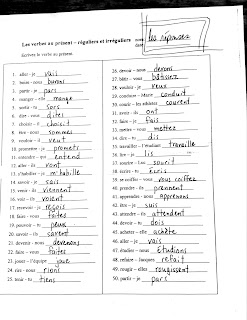 Les verbes au présent – réguliers et irréguliers
nom
les réponses
date
Écrivez le verbe au présent.
1. aller - je vais
2. boire - nous buvons
3. partir - je pars
4. manger - elle mange
5. mettre - tu mets
6. dire - vous dites
7. choisir - il choisit
8. être - nous sommes
9. vouloir - il veut
10. promettre - je promets
11. entendre - on entend
12. aller - ils vont
13. s'habiller - je m'habille
14. savoir - je sais
15. venir - ils viennent
16. voir - ils voient
17. recevoir - je reçois
18. faire - vous faites
19. pouvoir - tu peux
20. savoir - ils savent
21. devenir - nous devenons
22. faire - vous faites
23. jouer - l'équipe joue
24. rire - nous rions
25. tenir - tu tiens
26. devoir - nous devons
27. bâtir - vous bâtissez
28. vouloir - je veux
29. conduire - Marie conduit
30. courir - les athlètes courent
31. avoir - ils ont
32. faire - je fais
33. mettre - vous mettez
34. dire - tu dis
35. travailler - l'étudiant travaille
36. lire - je lis
37. sourire - Luc sourit
38. écrire - tu écris
39. se coiffer - vous vous coiffez
40. prendre - ils prennent
41. apprendre - nous apprenons
42. être - je suis
43. attendre - ils attendent
44. devoir - tu dois
45. acheter - elle achète
46. aller - je vais
47. étudier - nous étudions
48. refaire - Jacques refait
49. rougir - elles rougissent
50. partir - je pars